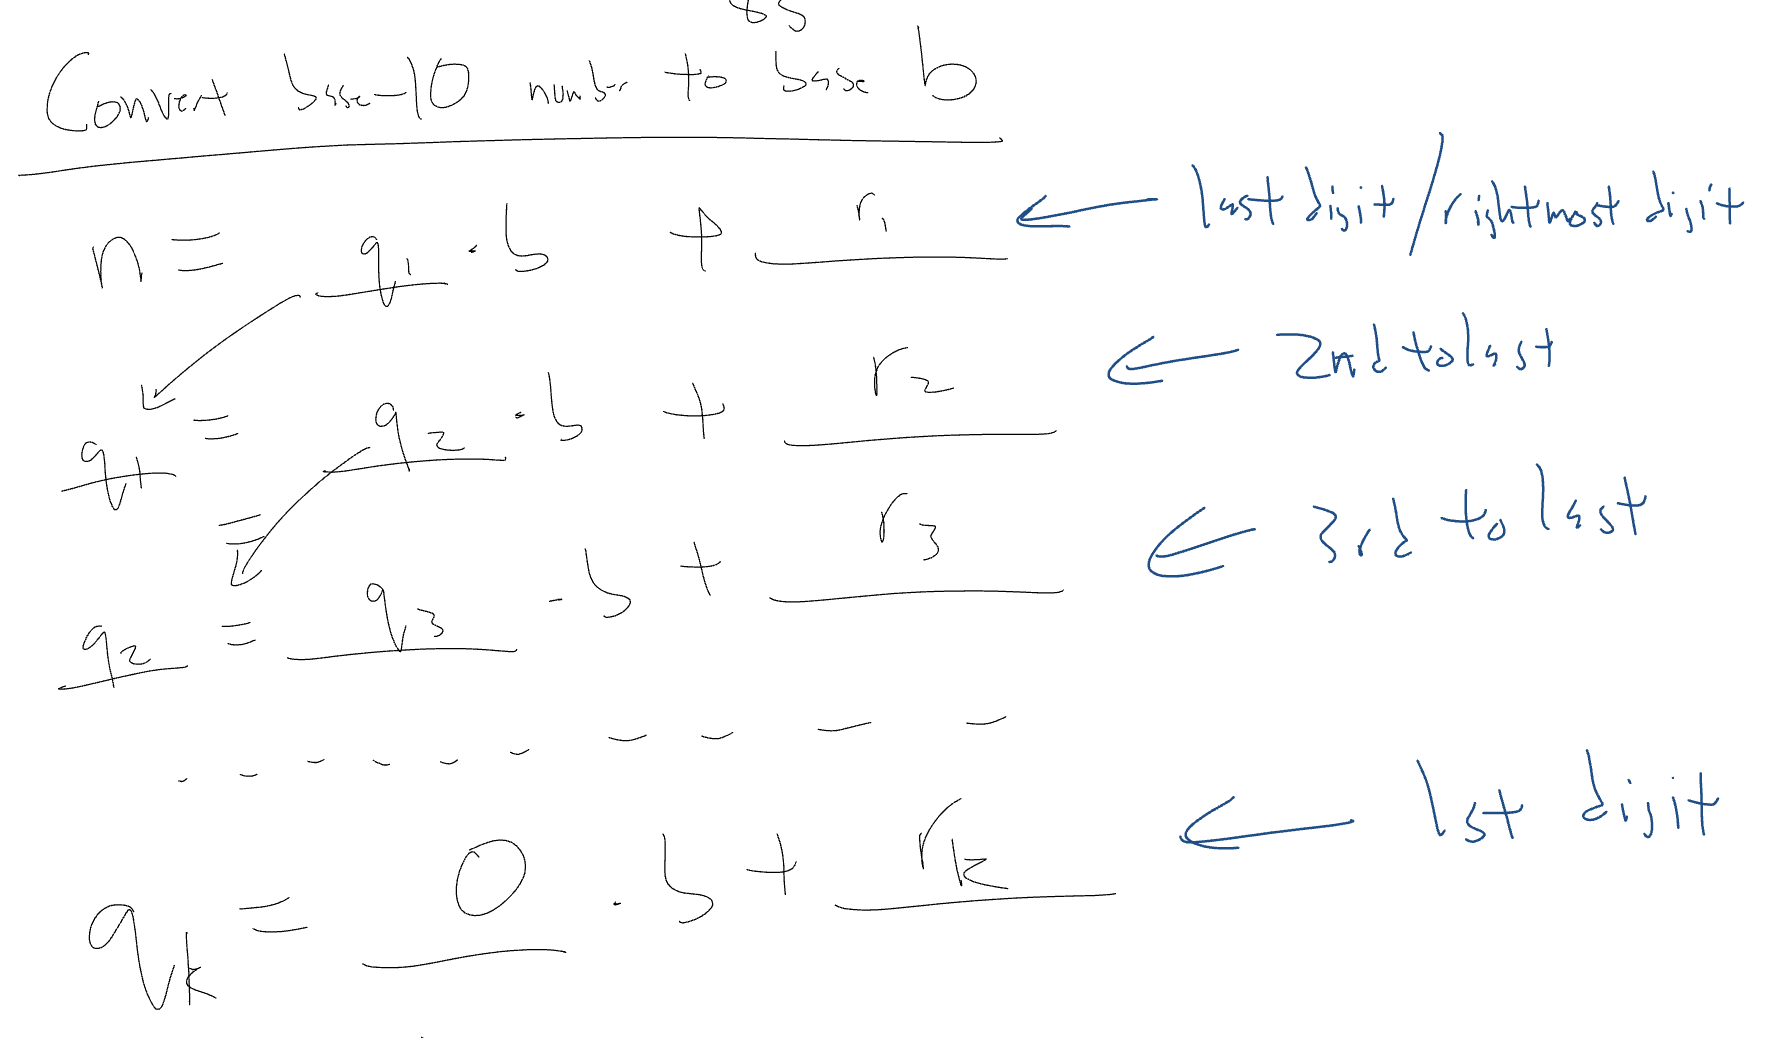 Convert base-10 number to base b
n = q₁ · b + r₁ ← last digit/rightmost digit
q₁ = q₂ · b + r₂ ← 2nd to last
=
q₂ = q₃ · b + r₃ ← 3rd to last
qₖ = 0 · b + rₖ ← 1st digit